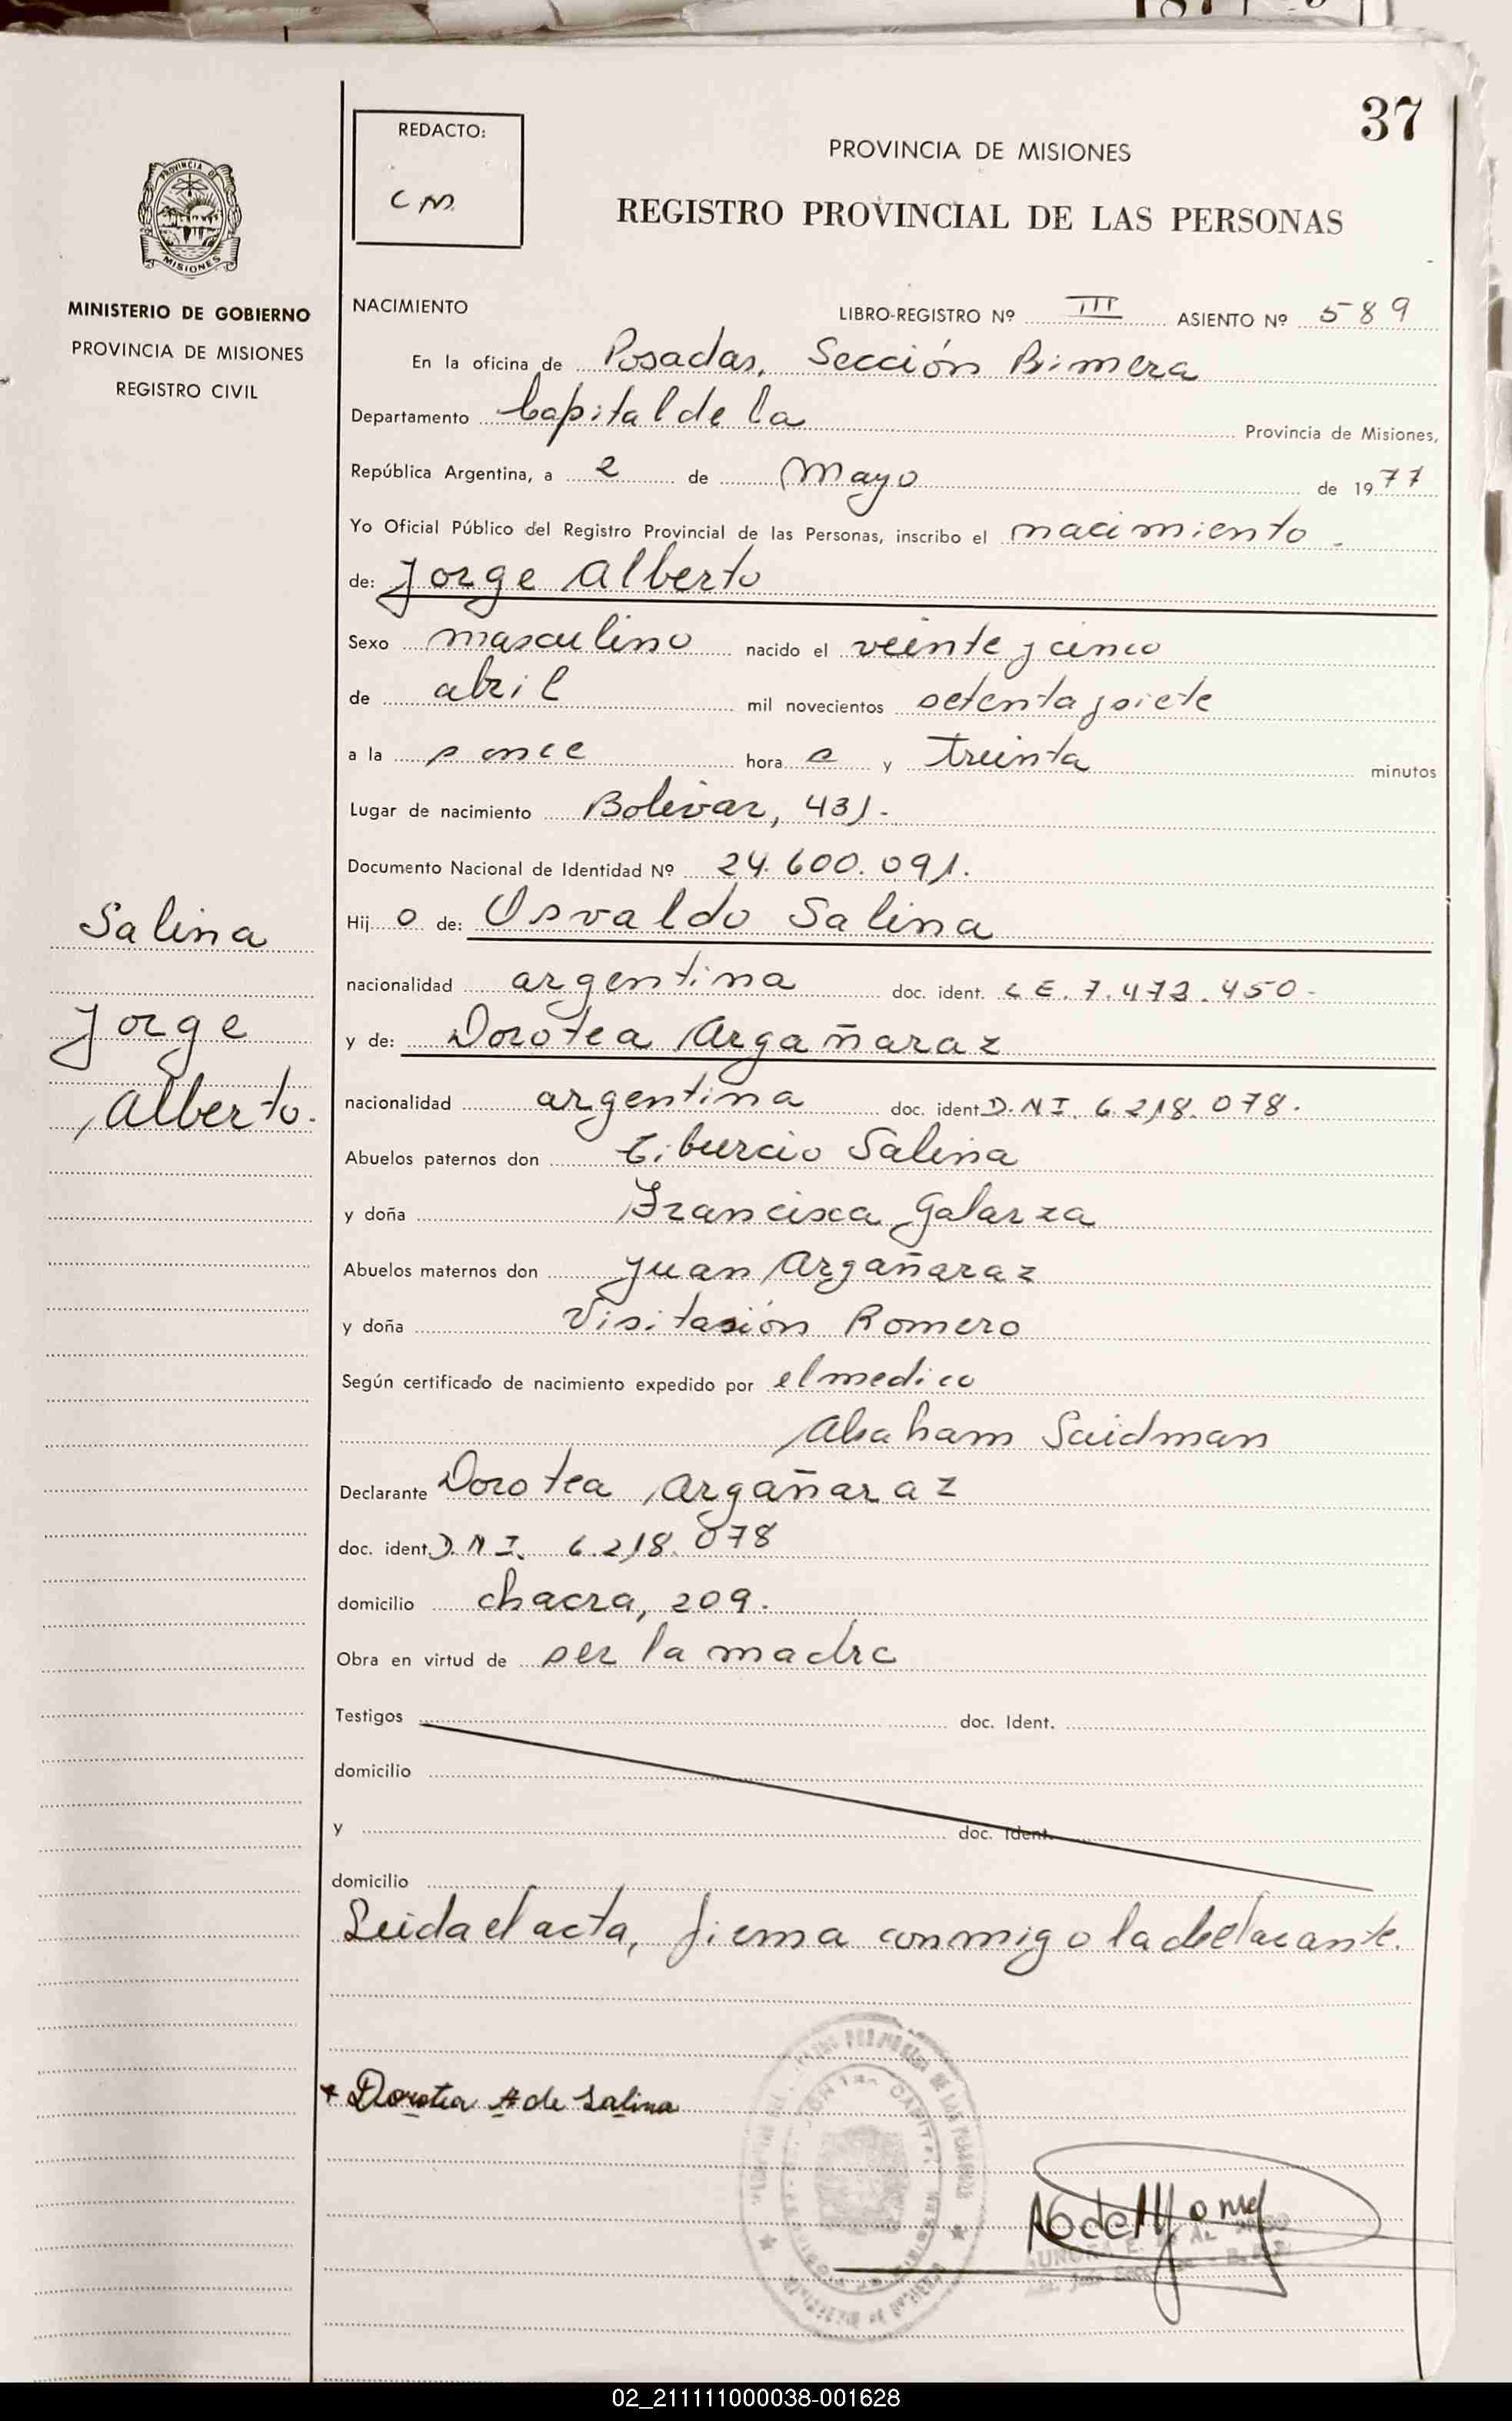 37
REDACTO:
CM.
PROVINCIA DE MISIONES
REGISTRO PROVINCIAL DE LAS PERSONAS
PROVINCIA DE
MISIONES
MINISTERIO DE GOBIERNO
PROVINCIA DE MISIONES
REGISTRO CIVIL
NACIMIENTO LIBRO-REGISTRO Nº III ASIENTO Nº 589
En la oficina de Posadas, Sección Primera
Departamento Capital de la Provincia de Misiones,
República Argentina, a 2 de Mayo de 1977
Yo Oficial Público del Registro Provincial de las Personas, inscribo el nacimiento.
de: Jorge Alberto
Sexo masculino nacido el veinte y cinco
de abril mil novecientos setenta y siete
a la s once hora s y treinta minutos
Lugar de nacimiento Bolivar, 431.
Documento Nacional de Identidad Nº 24.600.091.
Hij o de: Osvaldo Salina
nacionalidad argentina doc. ident. L E. 7.473.450-
y de: Dorotea Argañaraz
nacionalidad argentina doc. ident D.N I. 6.218.078.
Abuelos paternos don Tiburcio Salina
y doña Francisca Galarza
Abuelos maternos don Juan Argañaraz
y doña Visitasión Romero
Según certificado de nacimiento expedido por el medico
Abraham Saidman
Declarante Dorotea Argañaraz
doc. ident. D.N I. 6.218.078
domicilio chacra, 209.
Obra en virtud de ser la madre
Testigos doc. Ident.
domicilio
y doc. Ident.
domicilio
Leida el acta, firma conmigo la declarante.
Salina
Jorge
Alberto.
Dorotea A de Salina
02_211111000038-001628